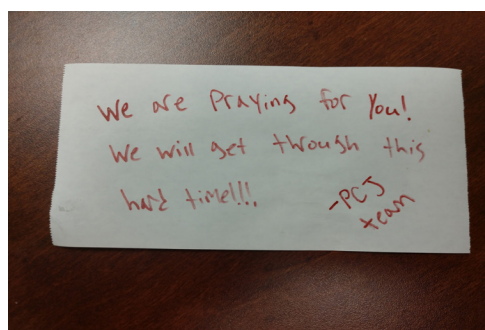 We are Praying for You!
We will get through this
hard time!!!.
-PCJ
team